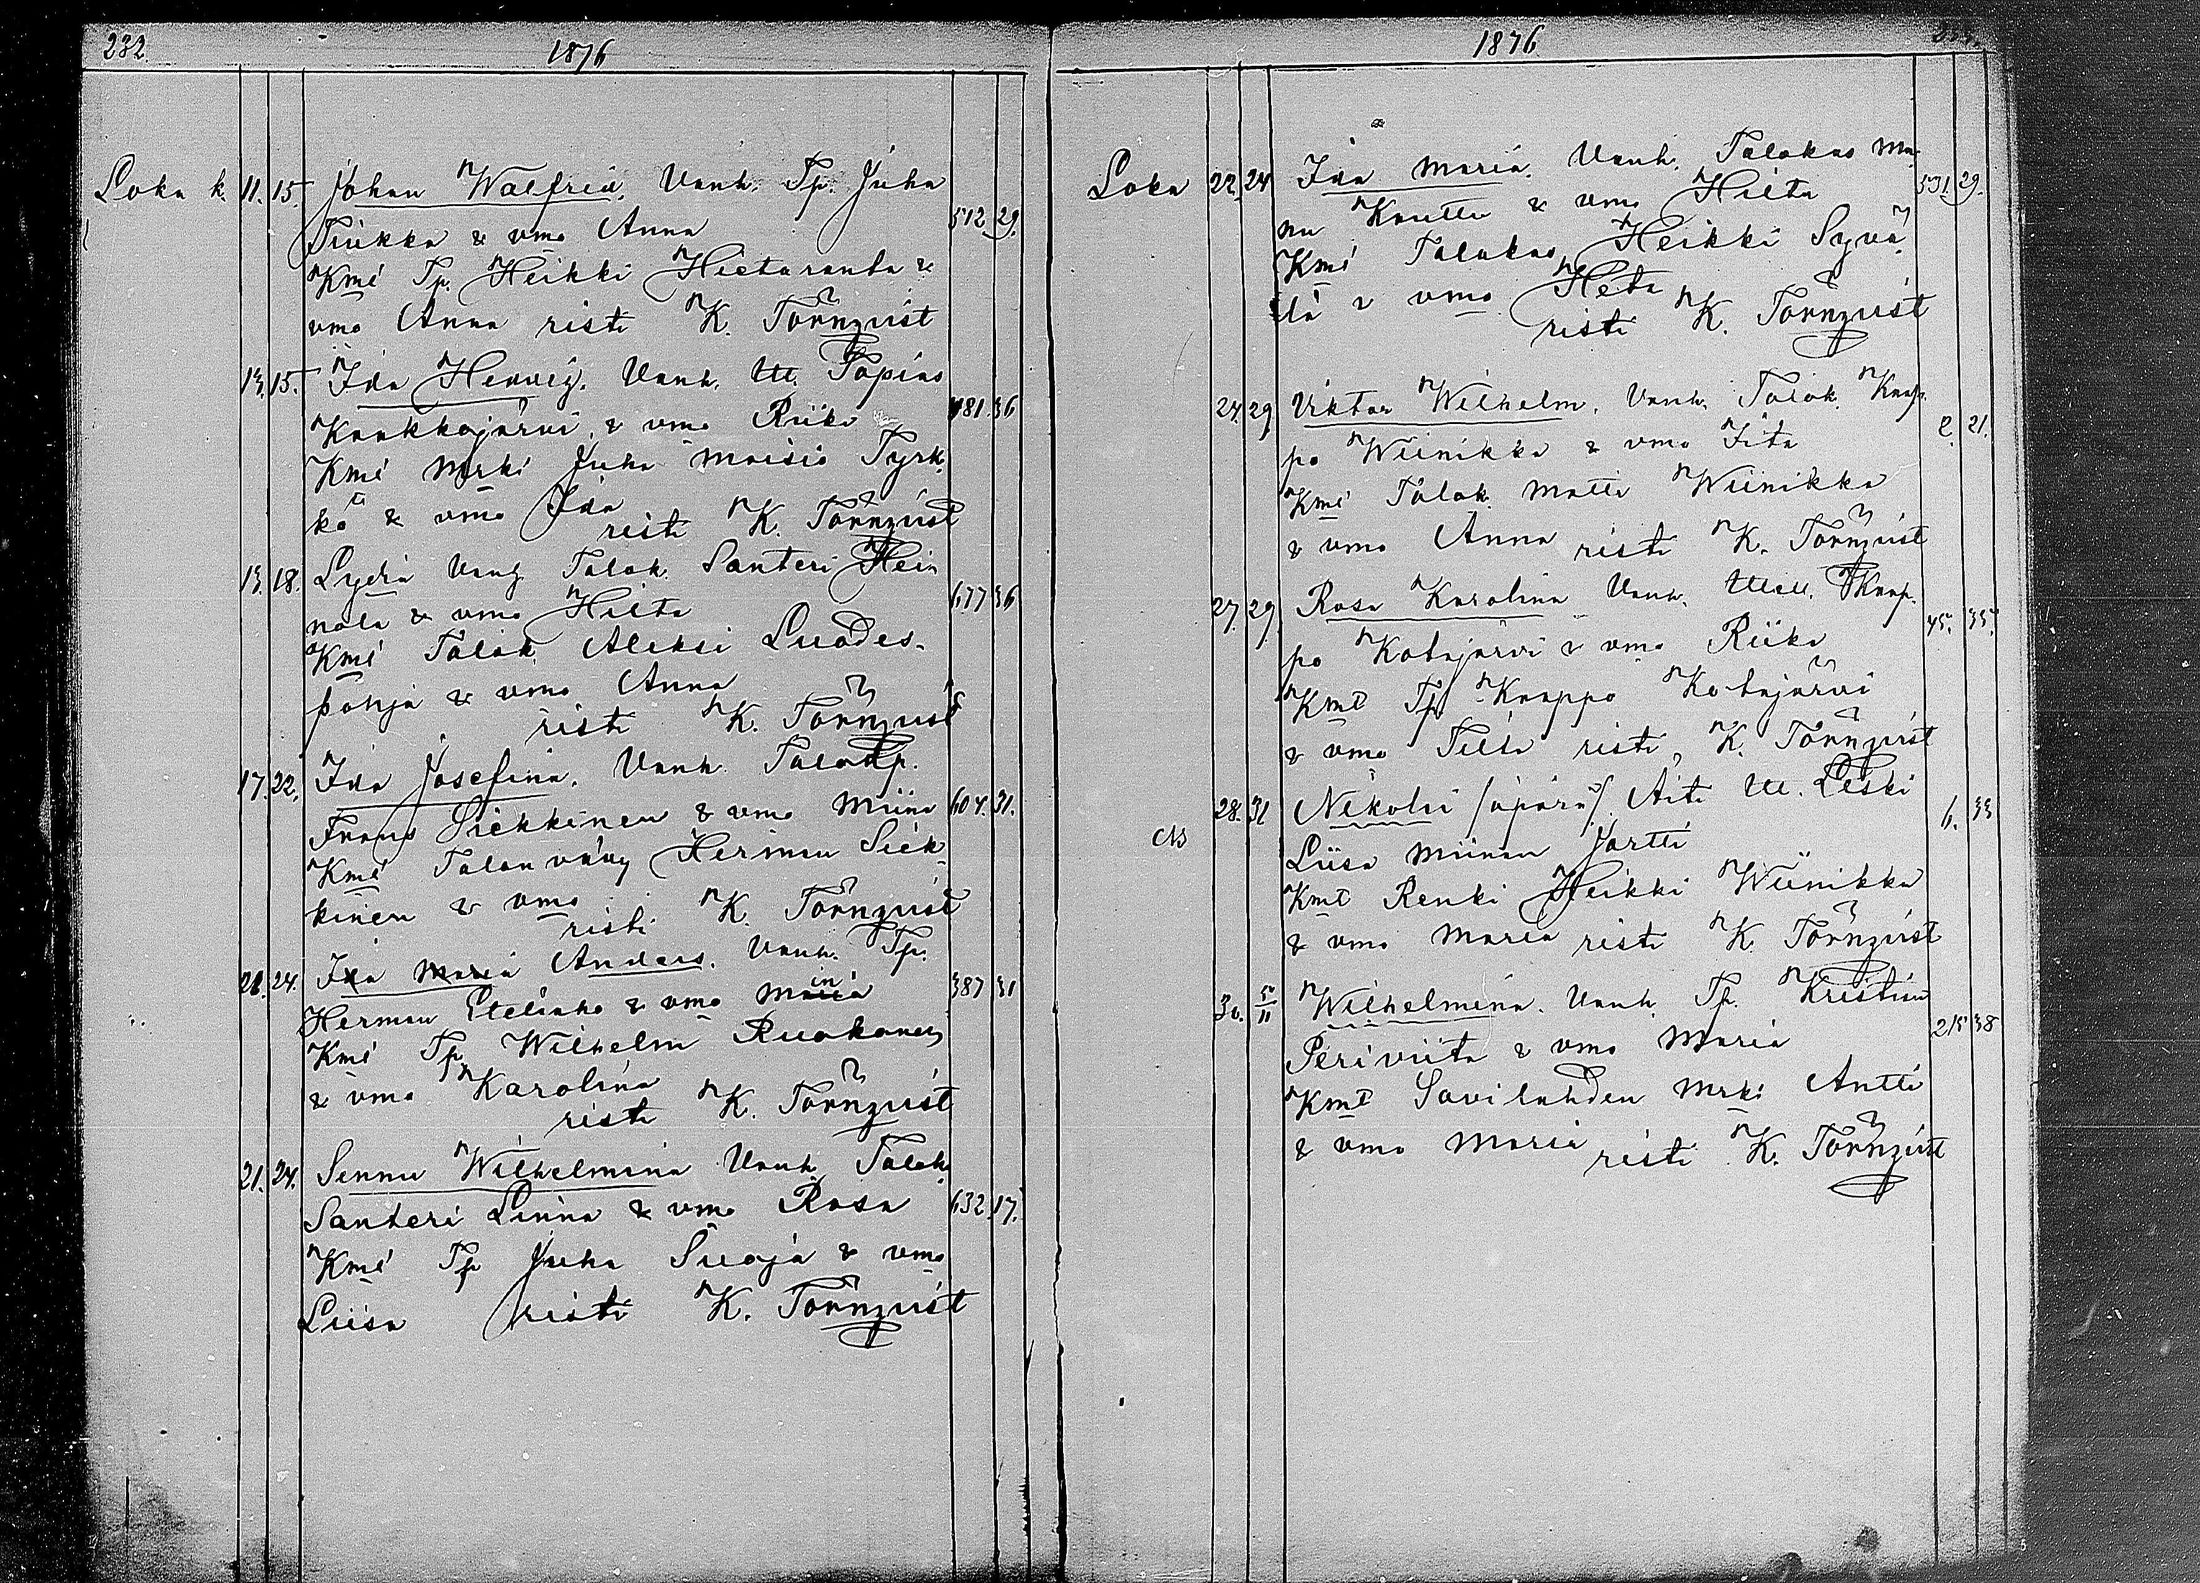 232.
1876
Loka k. 11. 15. Johan Walfrid. Vanh. Tp. Juha
Tiukka & vmo Anna 512. 29.
Kmt Tp. Heikki Hietaranta &
vmo Anna risti K. Törnqvist
13. 15. Ida Hedvig. Vanh. Itl. Topias
Kaakkojärvi & vmo Riika 481. 36
Kmt Mrki Juha Maisio Tyrk-
kö & vmo Ida
risti K. Törnqvist
13. 18. Lydia Vanh. Talok. Santeri Hei-
nola & vmo Hilta 677 36
Kmt Talok. Aleksi Luodes-
pohja & vmo Anna
risti K. Törnqvist
17. 22. Ida Josefina. Vanh. Talon Tp.
Frans Siekkinen & vmo Miina 604. 31.
Kmt Talon vävy Herman Siek-
kinen & vmo
risti K. Törnqvist
20. 24. Ida Maria Anders. Vanh. Tp.
Herman Eteläaho & vmo Miina 387 31
Kmt Tp. Wilhelm Ruokonen
& vmo Karolina
risti K. Törnqvist
21. 24. Sennu Wilhelmina Vanh. Talok.
Santeri Linna & vmo Rosa 632. 17.
Kmt Tp Juha Suoja & vmo
Liisa risti K. Törnqvist
1876
Loka 22. 24 Ida Maria. Vanh. Talokas Ma-
nu Knutti & vmo Hilta 531. 29.
Kmt Talokas Heikki Syvä-
lä & vmo Heta
risti K. Törnqvist
24. 29 Viktor Wilhelm. Vanh. Talok. Kaap-
po Wiinikka & vmo Iita 2. 21.
Kmt Talok. Matti Wiinikka
& vmo Anna risti K. Törnqvist
27. 29 Rosa Karolina Vanh. Kaap-
po Kotajärvi & vmo Riika 45. 35.
Kmt Tp. Kaappo Kotajärvi
& vmo Tilta risti K. Törnqvist
28. 31 Nikolai /äpärä/. Äiti Itl. Leski
Liisa Miinan Jortti 6. 33
Kmt Renki Heikki Wiinikka
& vmo Maria risti K. Törnqvist
30. 5/11 Wilhelmina. Vanh. Tp. Kristian
Periviita & vmo Maria 215 38
Kmt Savilahden Mrki Antti
& vmo Maria risti K. Törnqvist